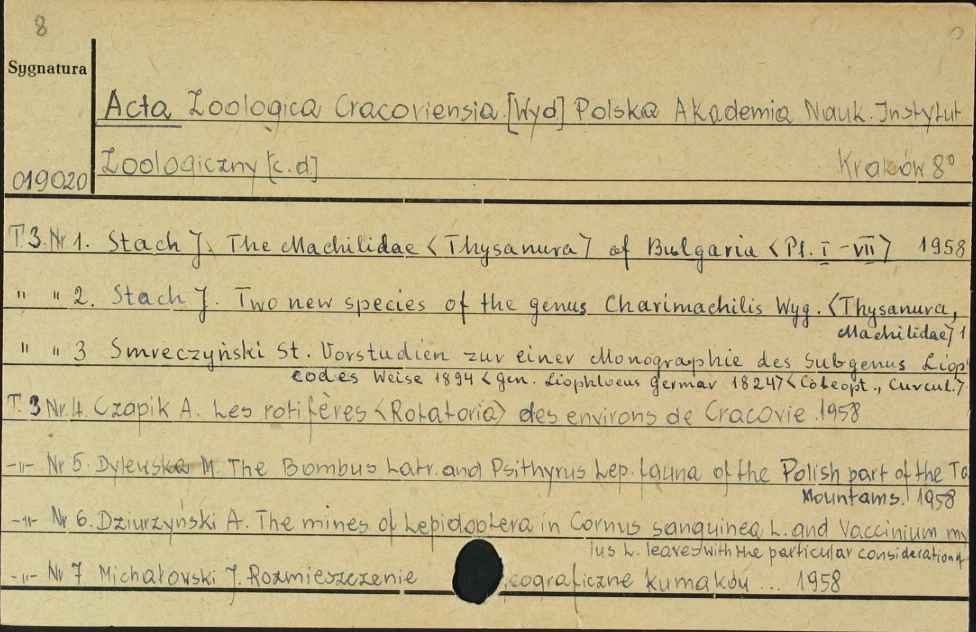 8
Sygnatura
Acta Zoologica Cracoviensia [Wyd] Polska Akademia Nauk. Instytut
Zoologiczny [c.d] Kraków 8°
019020
T. 3. Nr 1. Stach J. The Machilidae <Thysanura> of Bulgaria <Pl. I - VII> 1958
" " 2. Stach J. Two new species of the genus Charimachilis Wyg. <Thysanura,
Machilidae> 1
" " 3 Smreczyński St. Vorstudien zur einer Monographie des Subgenus Liop
eodes Weise 1894 <gen. Liophloeus Germar 1824> <Coleopt., Curcul.>
T. 3 Nr 4. Czapik A. Les rotifères <Rotatoria> des environs de Cracovie. 1958
-"- Nr 5. Dylewska M. The Bombus Latr. and Psithyrus Lep. fauna of the Polish part of the Ta
Mountams. 1958
-"- Nr 6. Dziurzyński A. The mines of Lepidoptera in Cornus sanguinea L. and Vaccinium my
lus L. leaves with the particular consideration of
-"- Nr 7 Michałowski J. Rozmieszczenie eograficzne kumaków ... 1958